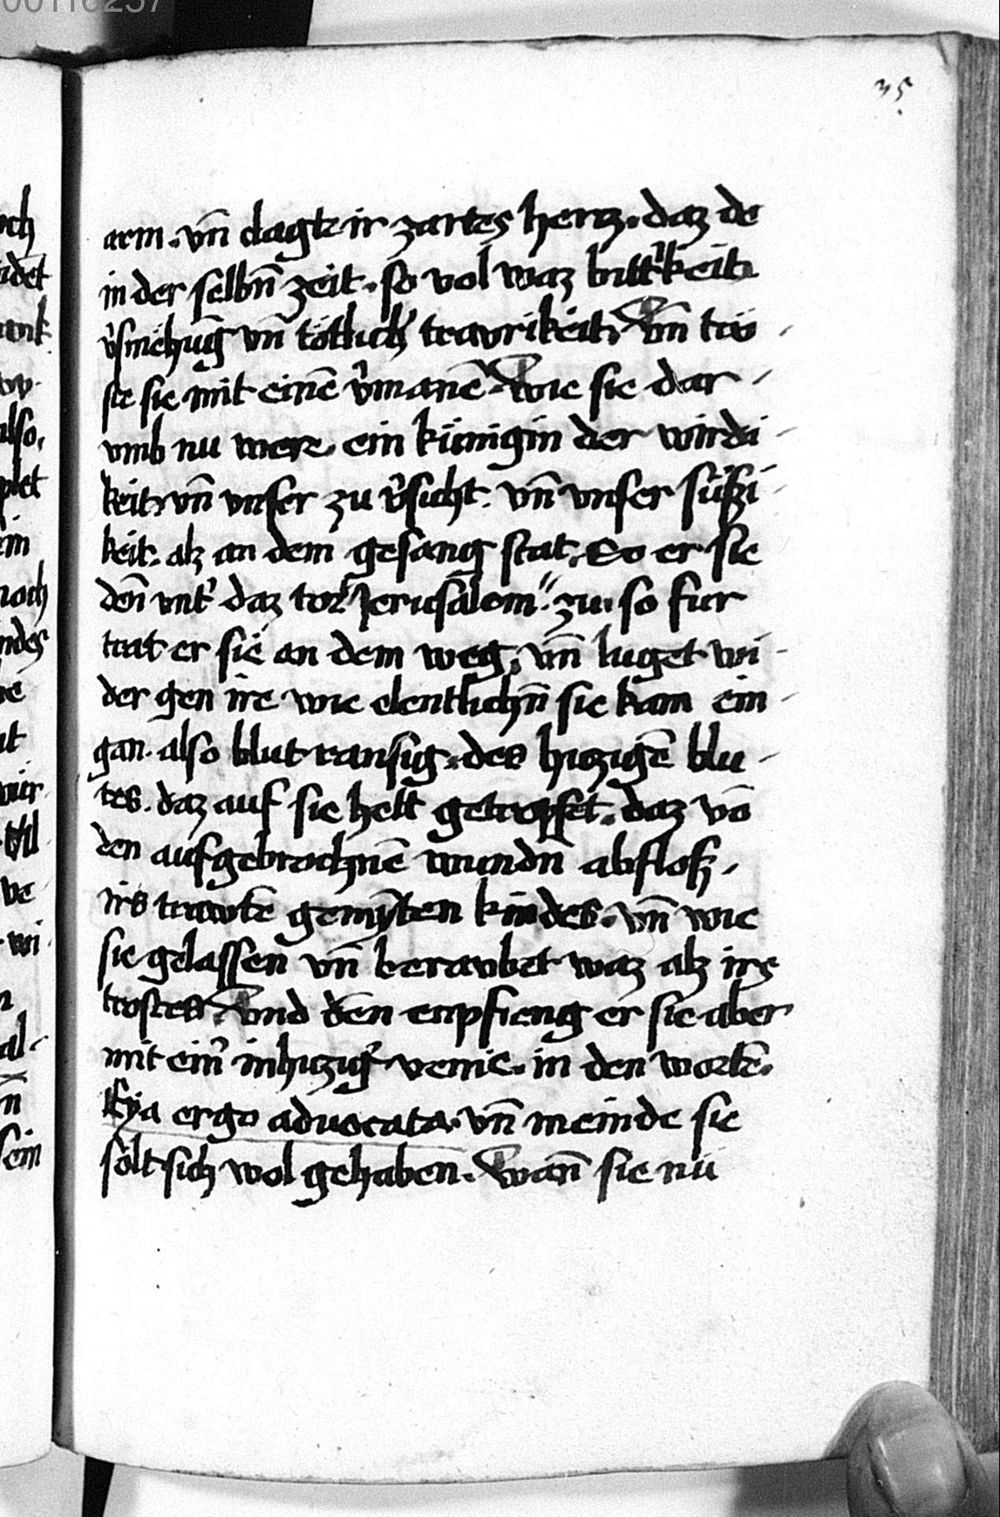 35
arm · vn̄ clagte ir zartes hertz · daz de
in der selbn̄ zeit · so vol waz bittˀkeit
vˀsmehūg vn̄ tötlichˀ travrikeit · Vn̄ trö
ste sie mit einē vˀmanē · Wie sie dar
vmb nu were ein künigin der wirdi
keit · vn̄ vnser zu vˀsicht · vn̄ vnser süssi
keit · alz an dem gesang stat · So er sie
den̄ vntˀ daz tor Jerusalem zu · so fur
trat er sie an dem weg · vn̄ luget wi
der gen ire wie elentlichn̄ sie kam ein
gan · also blut ransig · des hitzigē blu
tes · daz auf sie hett getropfet · daz vō
den aufgebrochnē wundn̄ abfloß ·
irs trawtē gemynten kindes · vn̄ wie
sie gelassen vn̄ beravbet waz alz irs
trostes · Vnd den enpfieng er sie aber
mit einˀ inhitzigˀ venie · in den wortē ·
Eya ergo advocata · vn̄ meinde sie
sölt sich wol gehaben · Wan̄ sie nü